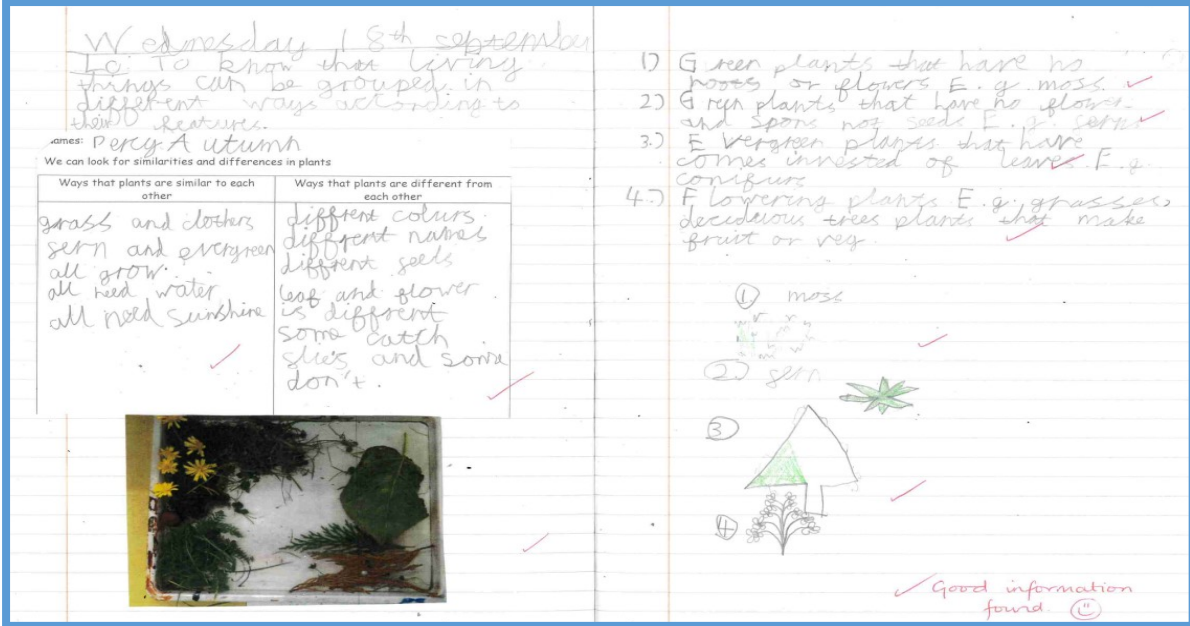 Wednesday 18th september
Lo: To know that living
things can be grouped in
different ways according to
their features.
Names: Percy. Autumn
We can look for similarities and differences in plants
Ways that plants are similar to each
other
grass and clothers
sern and evergreen
all grow.
all need water
all need sunshine
Ways that plants are different from
each other
diffrent colurs.
diffrent names
diffrent seeds
leaf and flower
is diffrent
some catch
slies and some
don't.
1) Green plants that have no
roots or flowers E.g. moss.
2) Green plants that have no flower
and spons not seeds E.g. serns
3.) Evergreen plants that have
comes invested of leaves E.g.
conifurs
4.) Flowering plants E.g, grasses,
decideious trees plants that make
fruit or veg.
1 moss
2 sern
3
4
Good information
found.